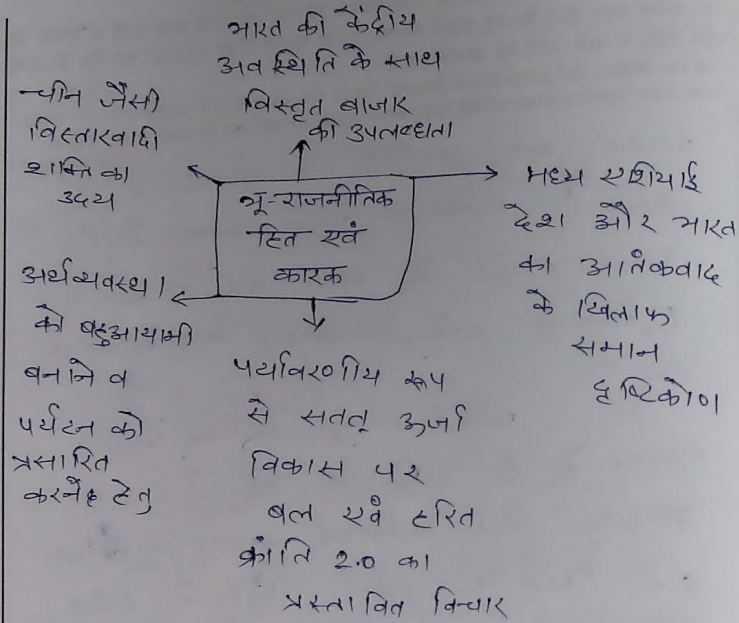 भारत की केंद्रीय
अवस्थिति के साथ
विस्तृत बाजार
की उपलब्धता
चीन जैसी
विस्तारवादी
शक्ति का
उदय
भू-राजनीतिक
हित एवं
कारक
मध्य एशियाई
देश और भारत
का आतंकवाद
के खिलाफ
समान
दृष्टिकोण
अर्थव्यवस्था
को बहुआयामी
बनाने व
पर्यटन को
प्रसारित
करने हेतु
पर्यावरणीय रूप
से सतत् ऊर्जा
विकास पर
बल एवं हरित
क्रांति 2.0 का
प्रस्तावित विचार